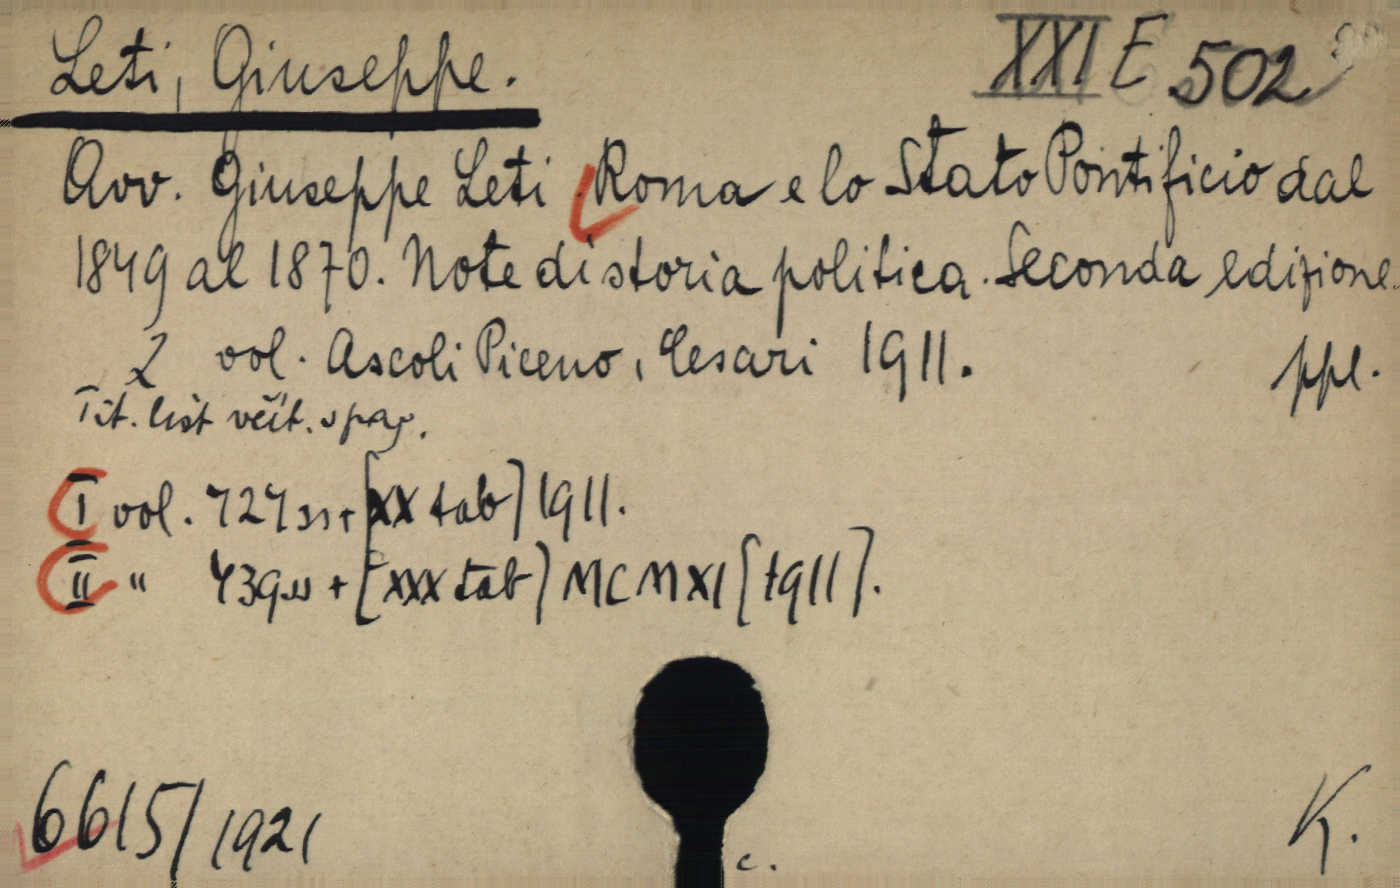 Leti, Giuseppe.
XXI E 502
Avv. Giuseppe Leti. Roma e lo Stato Pontificio dal
1849 al 1870. Note di storia politica. Seconda edizione.
2 vol. Ascoli Piceno, Cesari 1911.
ppl.
Tit. list včít. spag.
I vol. 424 ss + [XX tab] 1911.
II " 439 ss + [XXX tab] MCMXI [1911].
6615/1921
c.
K.